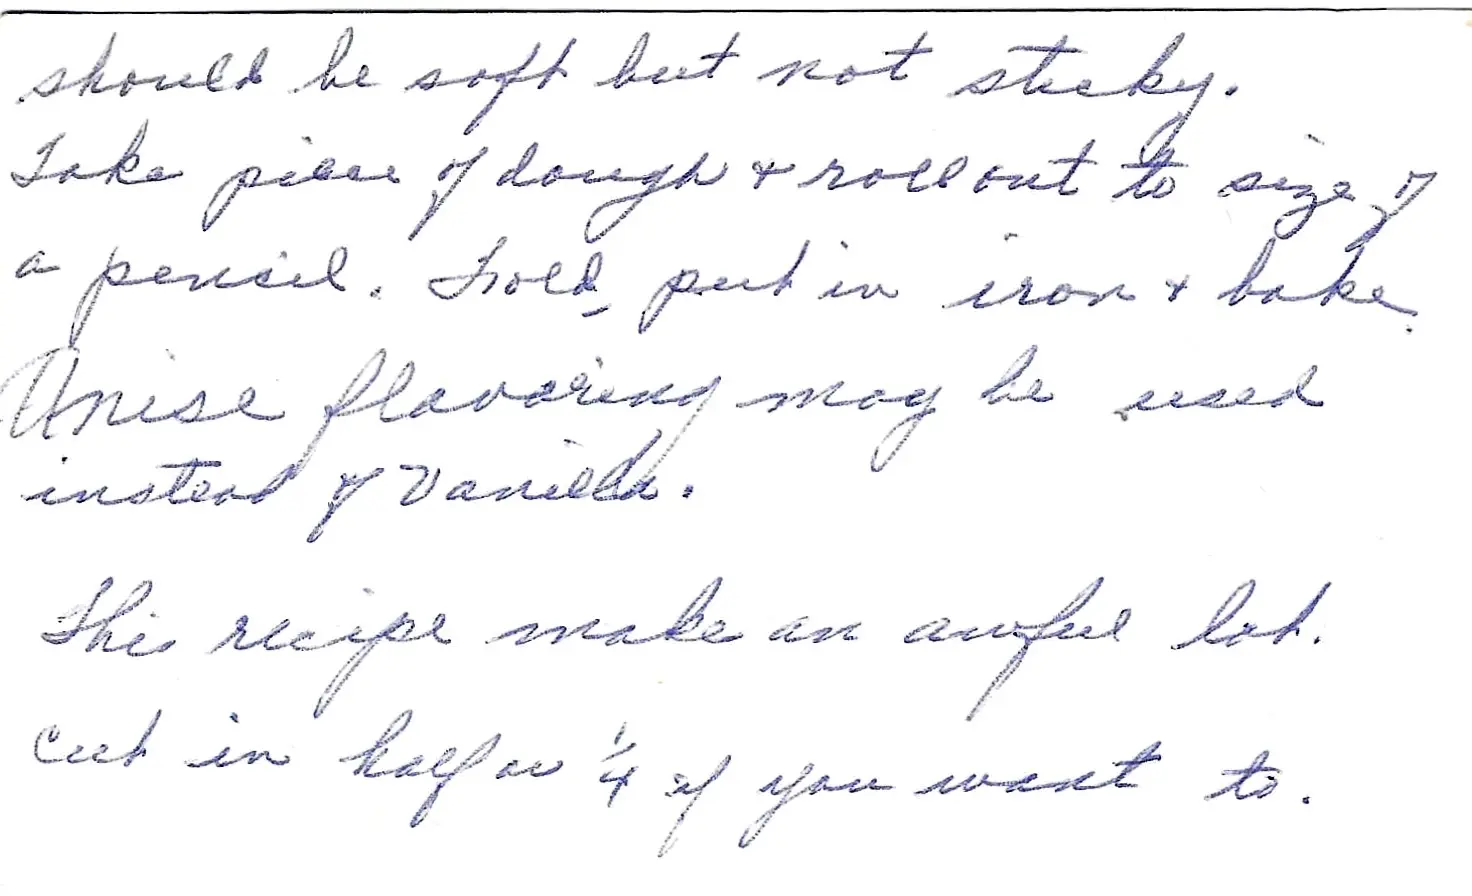 should be soft but not sticky.
Take piece of dough & roll out to size of
a pencil. Fold, put in iron & bake.
Anise flavoring may be used
instead of Vanilla.
This recipe make an awful lot.
Cut in half or 1/4 if you want to.